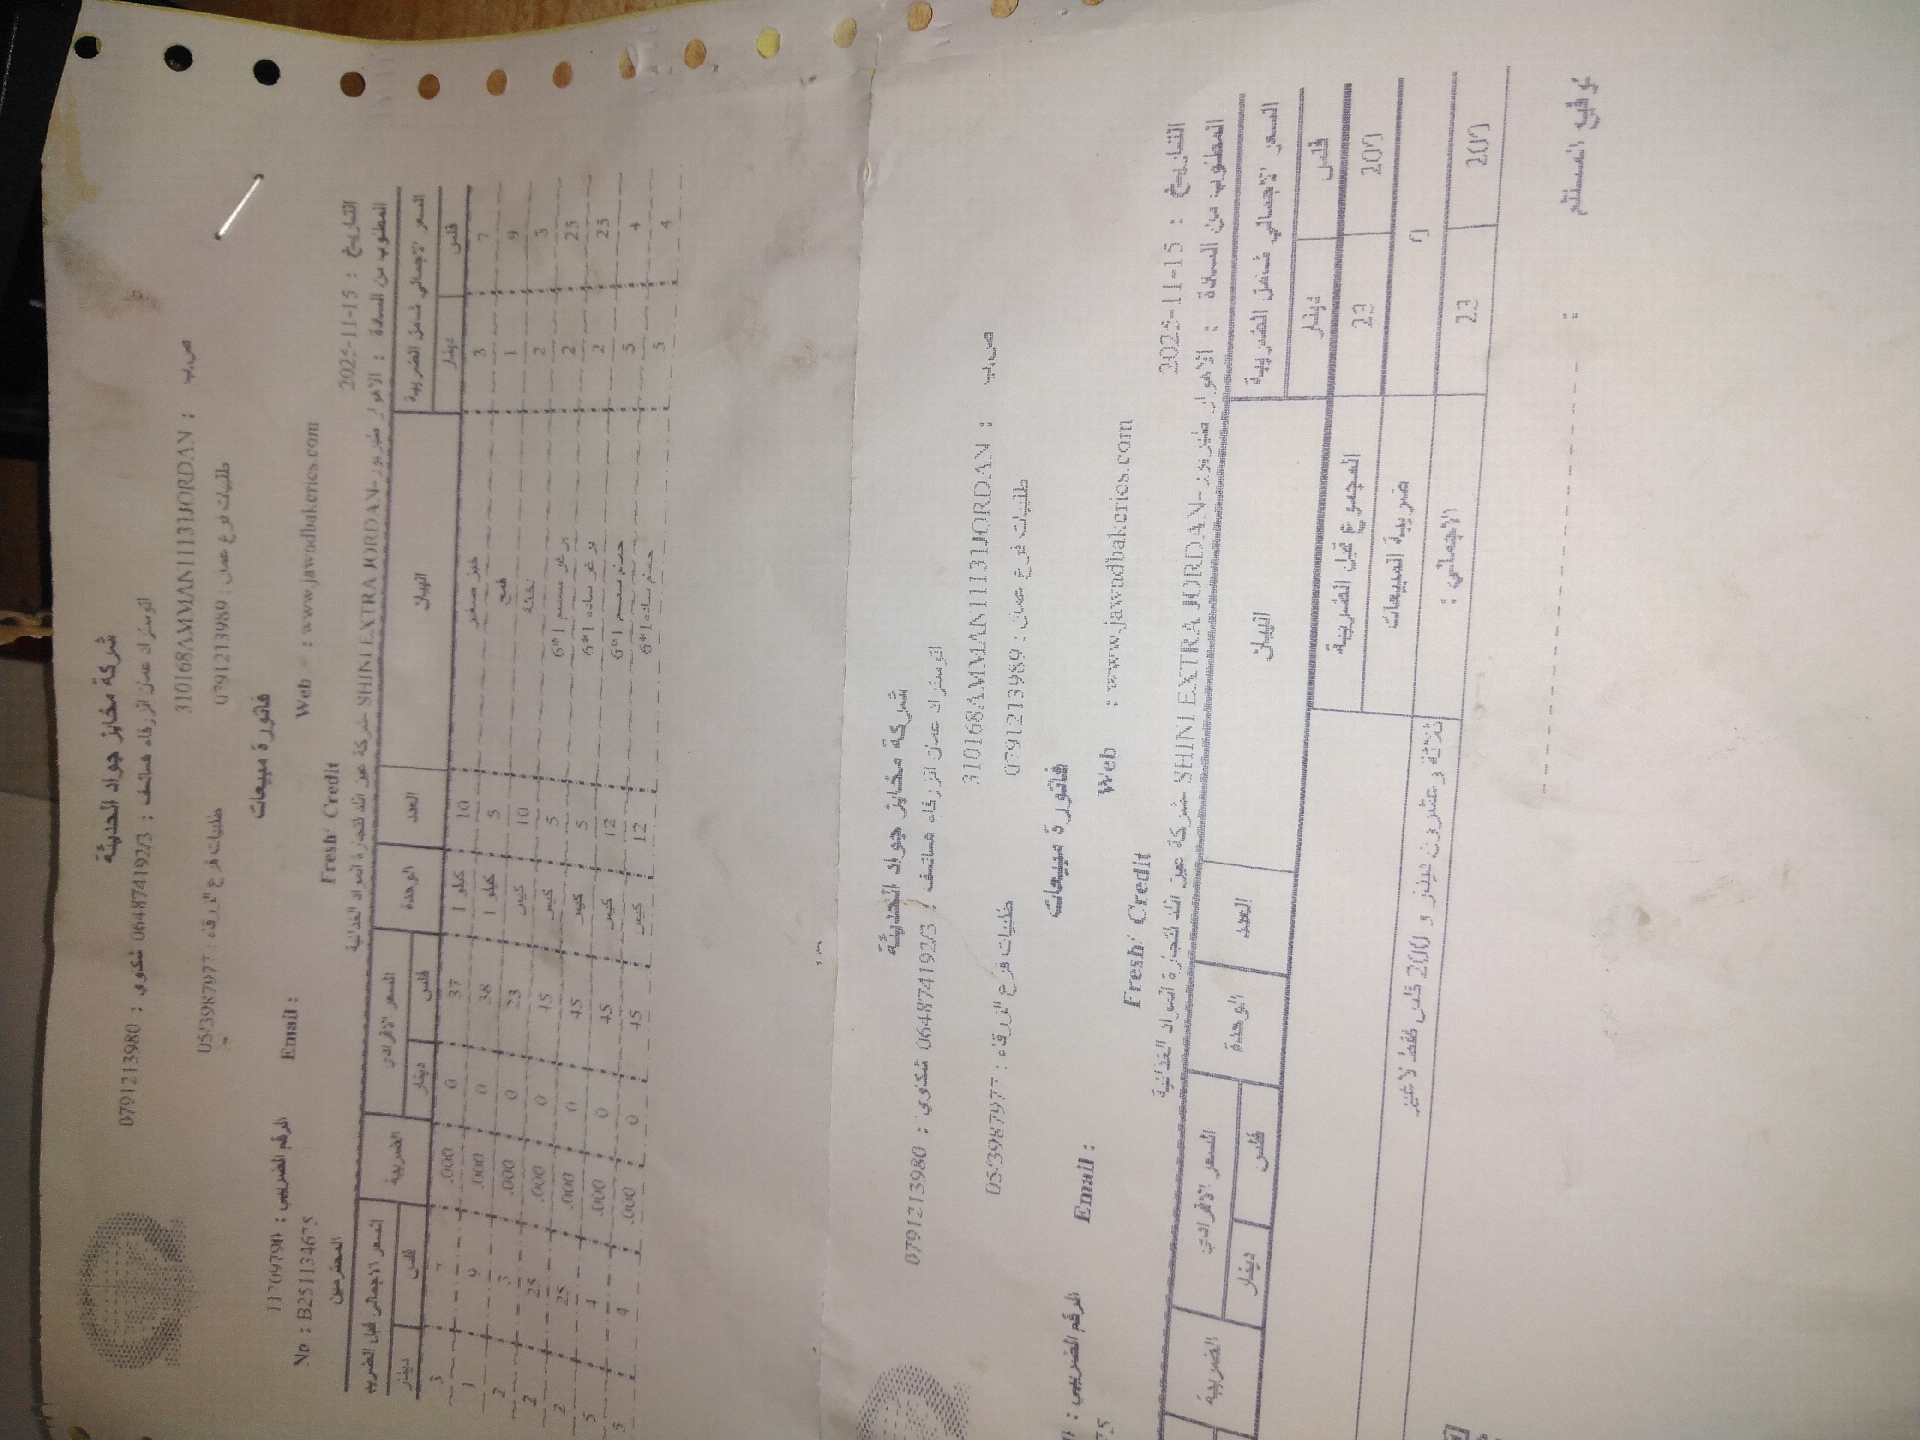 شركة مخابز جواد الحديثة
اتوستراد عمان الزرقاء هساتسف : 064874192/3 شكاوي : 0791213980
310168AMMAN11131JORDAN : ص.ب
طلبيات فرع عمان : 0791213989 طلبيات فرع الزرقاء : 05/3987977
فاتورة مبيعات
الرقم الضريبي : 11709790
Email : Web : www.jawadbakeries.com
No : B251134675
Fresh/ Credit
التاريخ : 2025-11-15
المطلوب من السادة : الاهوار طبربور-SHINI EXTRA JORDAN شركة عين الله لتجارة المواد الغذائية المحترمين
السعر الاجمالي شامل الضريبة البيان العدد الوحدة السعر الافرادي الضريبة السعر الاجمالي قبل الضريبة
فلس دينار فلس دينار فلس دينار
7 3 خبز صغير 10 كيلو 1 37 0 .000 7 3
9 1 قمح 5 كيلو 1 38 0 .000 9 1
3 2 نخالة 10 كيس 23 0 .000 3 2
25 2 برغر سمسم 1*6 5 كيس 45 0 .000 25 2
25 2 برغر ساده 1*6 5 كيس 45 0 .000 25 2
4 5 حمام سمسم 1*6 12 كيس 45 0 .000 4 5
4 5 حمام ساده 1*6 12 كيس 45 0 .000 4 5
شركة مخابز جواد الحديثة
اتوستراد عمان الزرقاء هساتسف : 064874192/3 شكاوي : 0791213980
310168AMMAN11131JORDAN : ص.ب
طلبيات فرع عمان : 0791213989 طلبيات فرع الزرقاء : 05/3987977
فاتورة مبيعات
الرقم الضريبي :
Email : Web : www.jawadbakeries.com
Fresh/ Credit
التاريخ : 2025-11-15
المطلوب من السادة : الاهوار طبربور-SHINI EXTRA JORDAN شركة عين الله لتجارة المواد الغذائية
السعر الاجمالي شامل الضريبة البيان العدد الوحدة السعر الافرادي الضريبة
فلس دينار فلس دينار
200 23 المجموع قبل الضريبة
0 ضريبة المبيعات
200 23 الاجمالي : ثلاثة و عشرون دينار و 200 فلس فقط لا غير
توقيع المستلم :